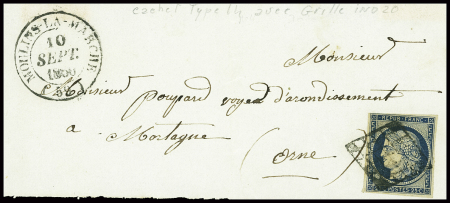 cachet Type 14 avec Grille INDO
MOULINS-LA-MARCHE
10
SEPT.
1850
Monsieur
Monsieur Poupard voyer d'arondissement
a Mortagne
(Orne)
REPUB. FRANC.
POSTES 25 C